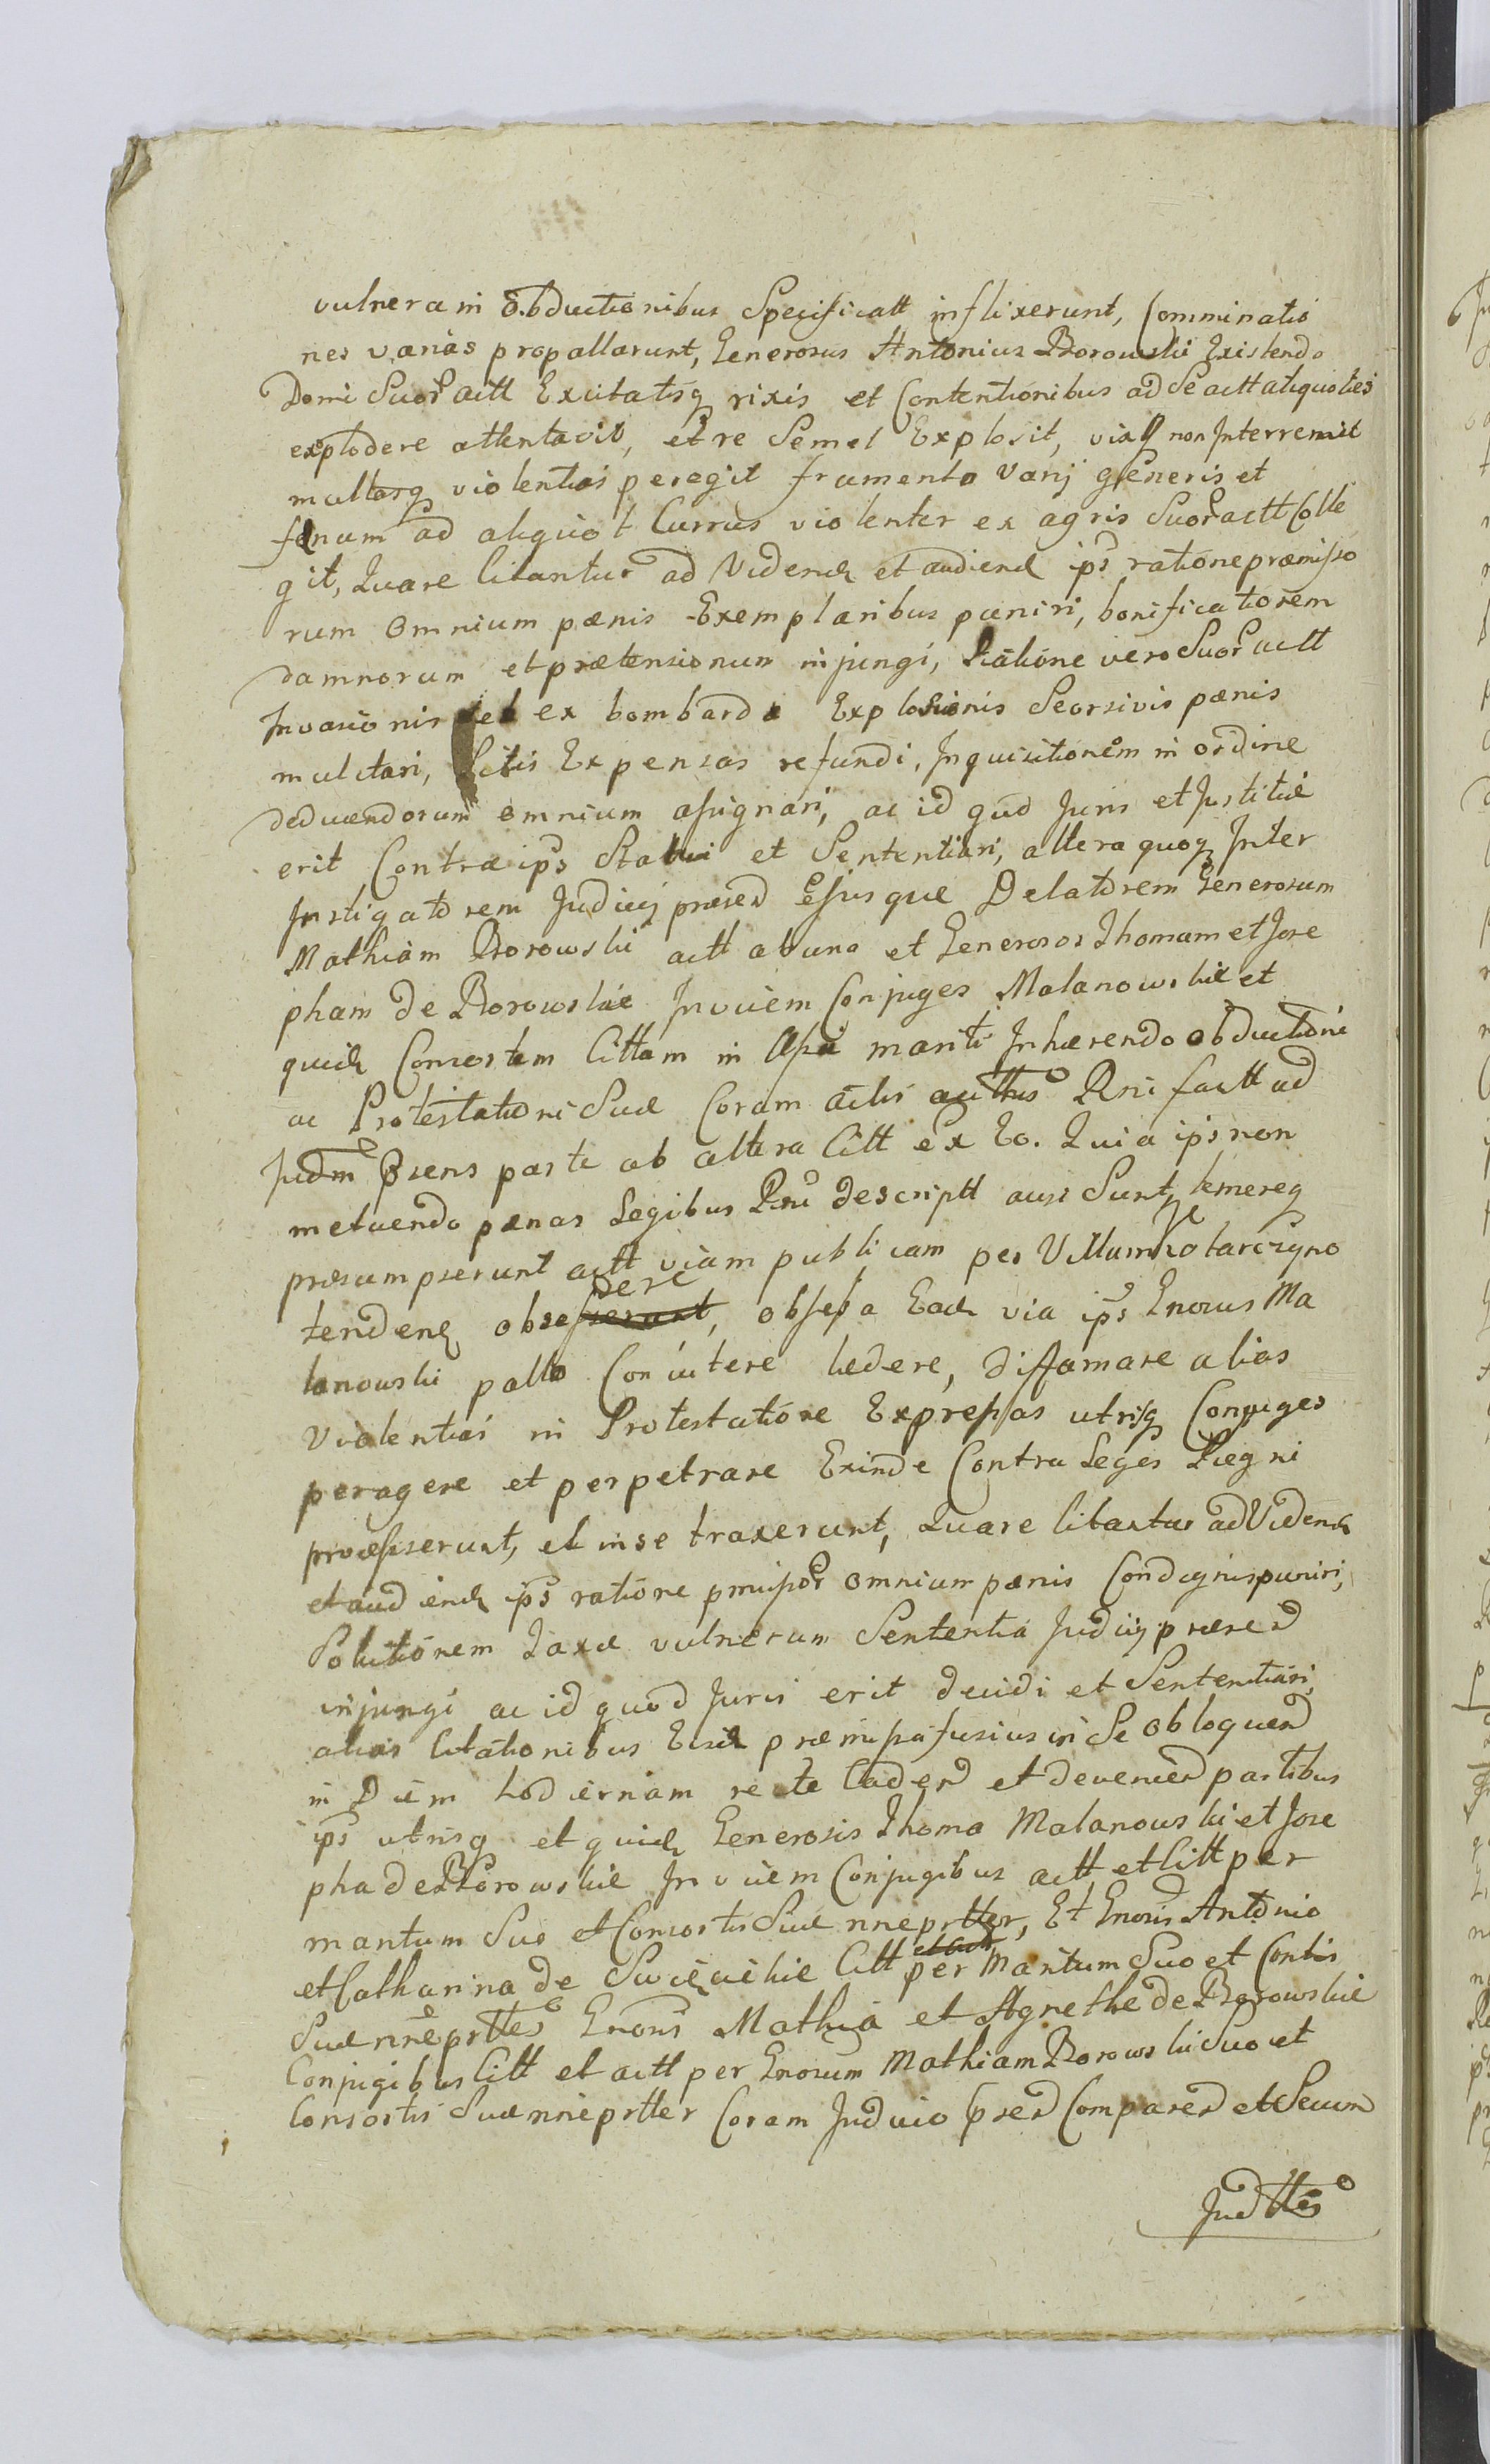 vulnera in obductionibus Specificatt inflixerunt, Comminatio
nes varias propallarunt, Generosus Antonius Borowski Existendo
Domi Suor actt Excitatisq rixis et Contentionibus ad Se actt aliquoties
explodere attentavit, et re Semel Explosit, non Interremit
multasq violentias peregit frumento varij generis et
fenum ad aliquot Currus violenter ex agris Suor actt Colle
git, Quare Citantur ad Videnđ et audienđ ips ratione præmisso
rum omnium pænis Exemplaribus pæniri, bonificationem
damnorum et prætensionum injungi, Ratione vero Suor actt
Invasionis et ex bombarda Explosionis Seorsivis pænis
mulctari, Litis Expensas refundi, Inquisitionem in ordine
deducendorum omnium assignari, ac id quod Juris et Justitiæ
erit Contra ips Statui et Sententiari, altera quoq Inter
Instigatorem Judicij præsend Ejusque Delatorem Generosum
Mathiam Borowski actt ab una et Generosos Thomam et Jose
pham de Borowskie Invicem Conjuges Malanowskie et
quidem Consortem Cittam in Assa mariti Inhærendo obductioni
ac Protestationi Suæ Coram actis Rni factt ad
Judm Psens parte ab altera Citt ex Eo. Quia ips non
metuendo pænas Legibus Rni descriptt ausi Sunt, temereq
præsumpserunt actt viam publicam per Villam
tendenđ obsesserunt, dere obsessa Eadem via ips Gnosus Ma
lanowski pallo Conicitere lædere, diffamare alias
Violentias in Protestatione Expressas utrisq Conjuges
peragere et perpetrare Exinde Contra Leges Regni
processerunt, et in se traxerunt, Quare Citantur ad Videnđ
et audienđ ips ratione pmissor omnium pænis Condignis puniri,
Solutionem Taxæ vulnerum Sententia Judicij præsend
injungi ac id quod Juris erit decidi et Sententiari,
alias Citationibus Eisd præmissa fusius in Se obloquend
in Diem hodiernam recte Cadend et deveniend partibus
ips utrisq et quidem Generosis Thoma Malanowski et Jose
pha de Borowskie Invicem Conjugibus actt et Citt per
maritum Suo et Consortis Suæ nne prtter, Et Gnoris Antonio
et Catharina de Citt per Maritum Suo et Contis
Suæ nne prtter Gnoris Mathia et Agnethe de Borowskie
Conjugibus Citt et actt per Gnosum Mathiam Borowski Suo et
Consortis Suæ nne prtter Coram Judicio Psend Comparend et Secum
Judttes